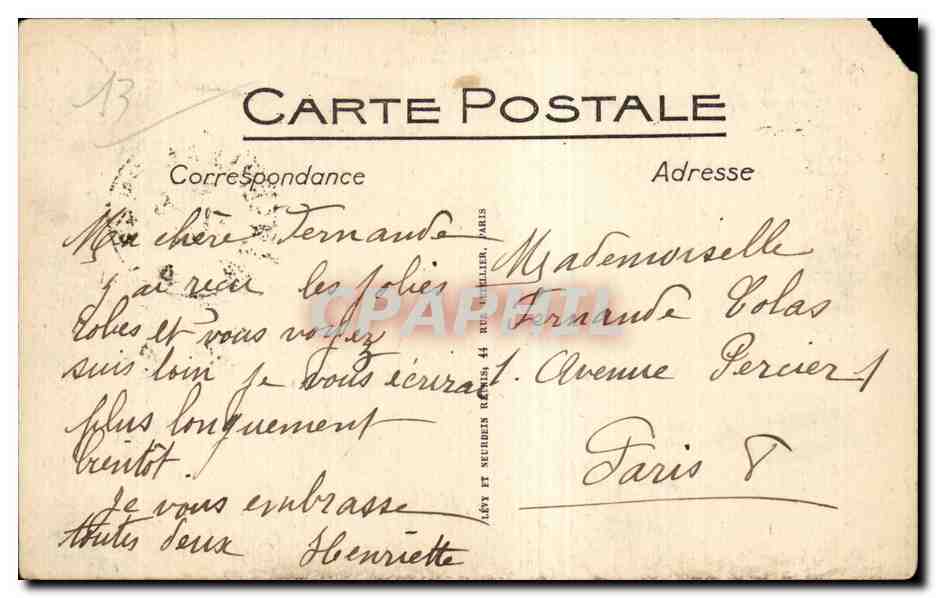 13
CARTE POSTALE
Correspondance
Adresse
Ma chère Fernande
j'ai reçu les jolies
robes et vous voyez
suis loin je vous écrirai
plus longuement
bientôt.
Je vous embrasse
toutes deux Henriette
LÉVY ET NEURDEIN RÉUNIS, 44 RUE LETELLIER, PARIS
Mademoiselle
Fernande Colas
1. Avenue Percier 1
Paris 8
CPAPHIL